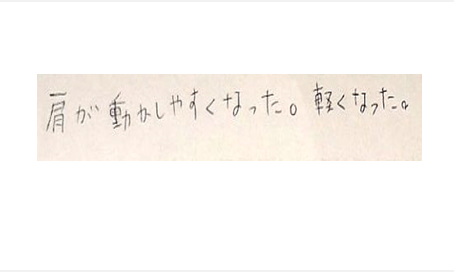 肩が動かしやすくなった。軽くなった。